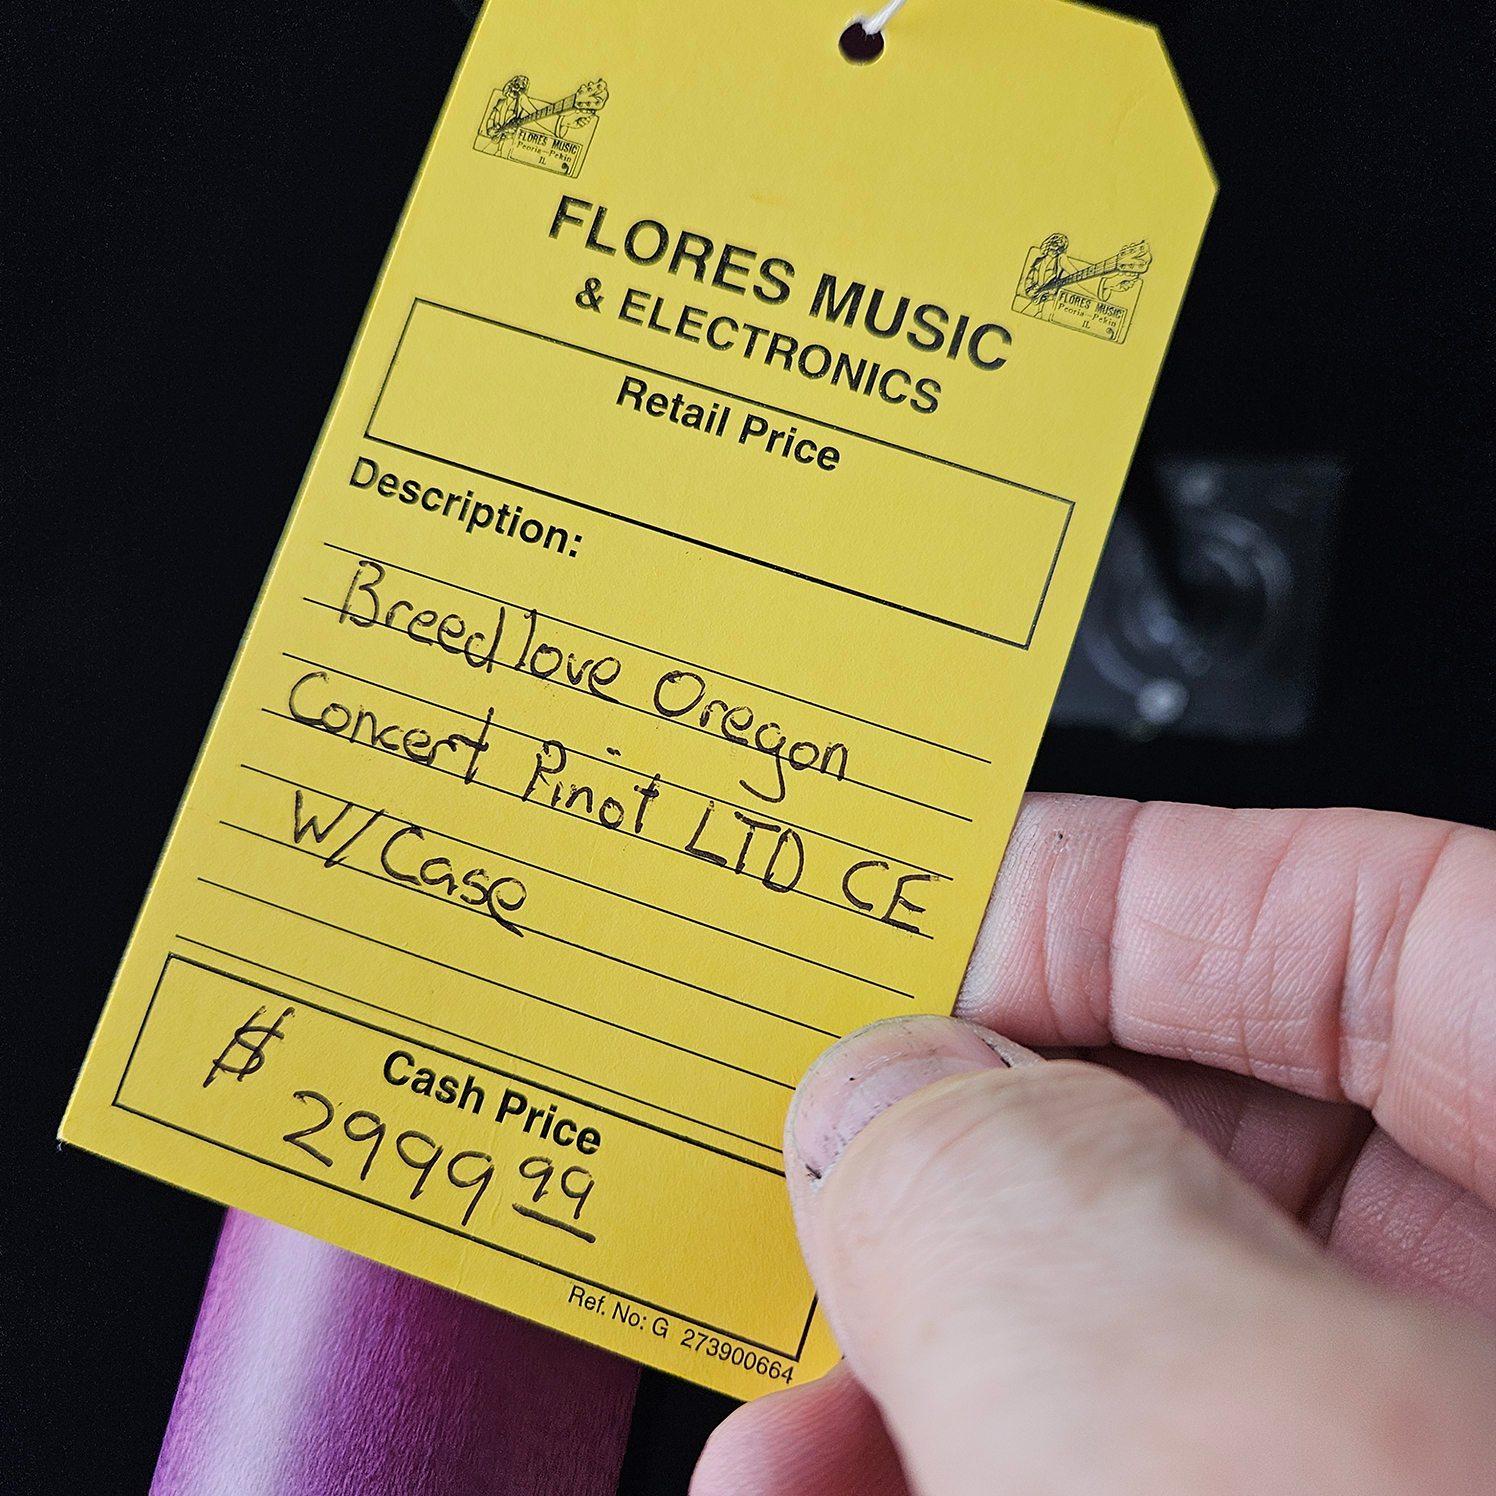 FLORES MUSIC
Peoria-Pekin
IL
FLORES MUSIC
& ELECTRONICS
FLORES MUSIC
Peoria-Pekin
IL
Retail Price
Description:
Breedlove Oregon
Concert Pinot LTD CE
W/Case
Cash Price
$ 2999 99
Ref. No: G 273900664